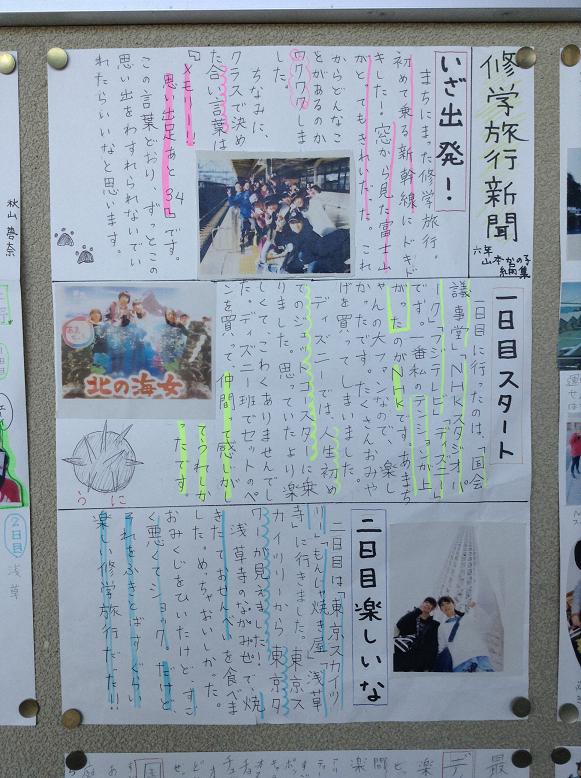 修学旅行新聞
六年
山本かの子
編集
いざ出発！
まちにまった修学旅行。
初めて乗る新幹線にドキド
キした！窓から見た富士山
がとてもきれいだった。これ
からどんなこ
とがあるのか
ワクワクしま
した。
ちなみに、
クラスで決め
た合い言葉は
『メモリー！
思い出足あと34』です。
この言葉どおり、ずっとこの
思い出をわすれられないでい
れたらいいなと思います。
一日目スタート
一日目に行ったのは、「国会
議事堂」「NHKスタジオパー
ク」「フジテレビ」「ディズニー」
です。一番私のテンションが上
がったのがNHKです。あまち
ゃんの大ファンなので、楽し
かったです。たくさんおみや
げを買ってしまいました。
ディズニーでは、人生初め
てのジェットコースターに乗
りました。思っていたより楽
しくてこわくありませんでし
た。ディズニー班でセットのペ
ンを買って、仲間って感じが
してうれしか
ったです。
北の海女
うに
二日目楽しいな
二日目は「東京スカイツ
リー」「もんじゃ焼き屋」「浅草
寺」に行きました。東京ス
カイツリーから東京タ
ワーが見えました！
浅草寺のなかみせで焼
きたておせんべいを食べま
した。めっちゃおいしかった。
おみくじをひいたけど、すご
く悪くてショック。だけど、
それをふきとばすぐらい
楽しい修学旅行だった！！
秋山夢奈
2日目
浅草